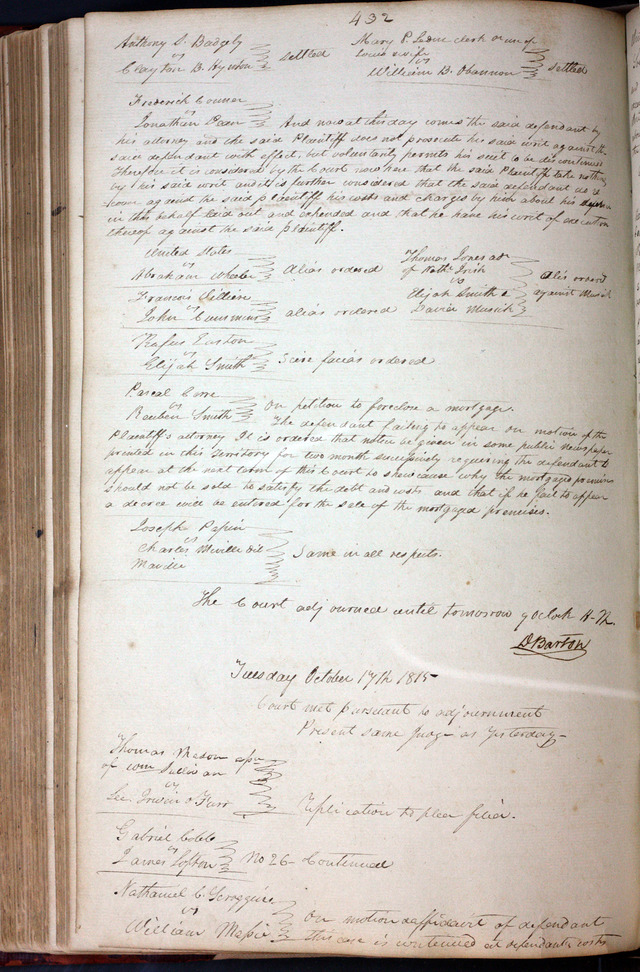 432
Anthony S. Badgely
vs
Clayton B. settled
Mary P. Leduc clerk or use of
Louis & wife
vs
William B. Obannon settled
Frederick Conner
vs
Jonathan Dean And now at this day comes the said defendant by
his attorney and the said Plaintiff does not prosecute his said writ against the
said defendant with effect, but voluntarily permits his suit to be discontinued
Therefore it is considered by the Court now here that the said Plaintiff take nothing
by his said writ and it is further considered that the said defendant do re
cover against the said plaintiff his costs and charges by him about his defence
in this behalf laid out and expended and that he have his writ of execution
thereof against the said plaintiff.
United States
vs
Abraham Wheeler Alias ordered
Thomas Jones adr
of Nath. Irish
vs
Elijah Smith &
David Musick
Alis ordered
against Musick
Francois
vs
John Cummins alias ordered
Rufus Easton
vs
Elijah Smith Scire facias ordered
Pascal Cerre
vs
Reuben Smith On petition to foreclose a mortgage.
The defendant failing to appear on motion of the
Plaintiff's attorney It is ordered that notice be given in some public Newspaper
printed in this Territory for two month sucessively requiring the defendant to
appear at the next term of this Court to shew cause why the mortgaged premises
should not be sold to satisfy the debt and costs and that if he fail to appear
a decree will be entered for the sale of the mortgaged premises.
Joseph Papin
vs
Charles Miville dit
Same in all respects.
The Court adjourned until tomorrow 9 oClock A.M.
D Barton
Tuesday October 17th 1815
Court met pursuant to adjournment
Present same Judge as Yesterday-
Thomas Mason
of Wm Sullivan
vs
Lee, Irwin & Farr Replication to plea filed.
Gabriel Cobb
vs
James Lofton No 26- Continued
Nathaniel C. Scroggin
vs
William Massie On motion & affidavit of defendant
this case is continued at defendants costs